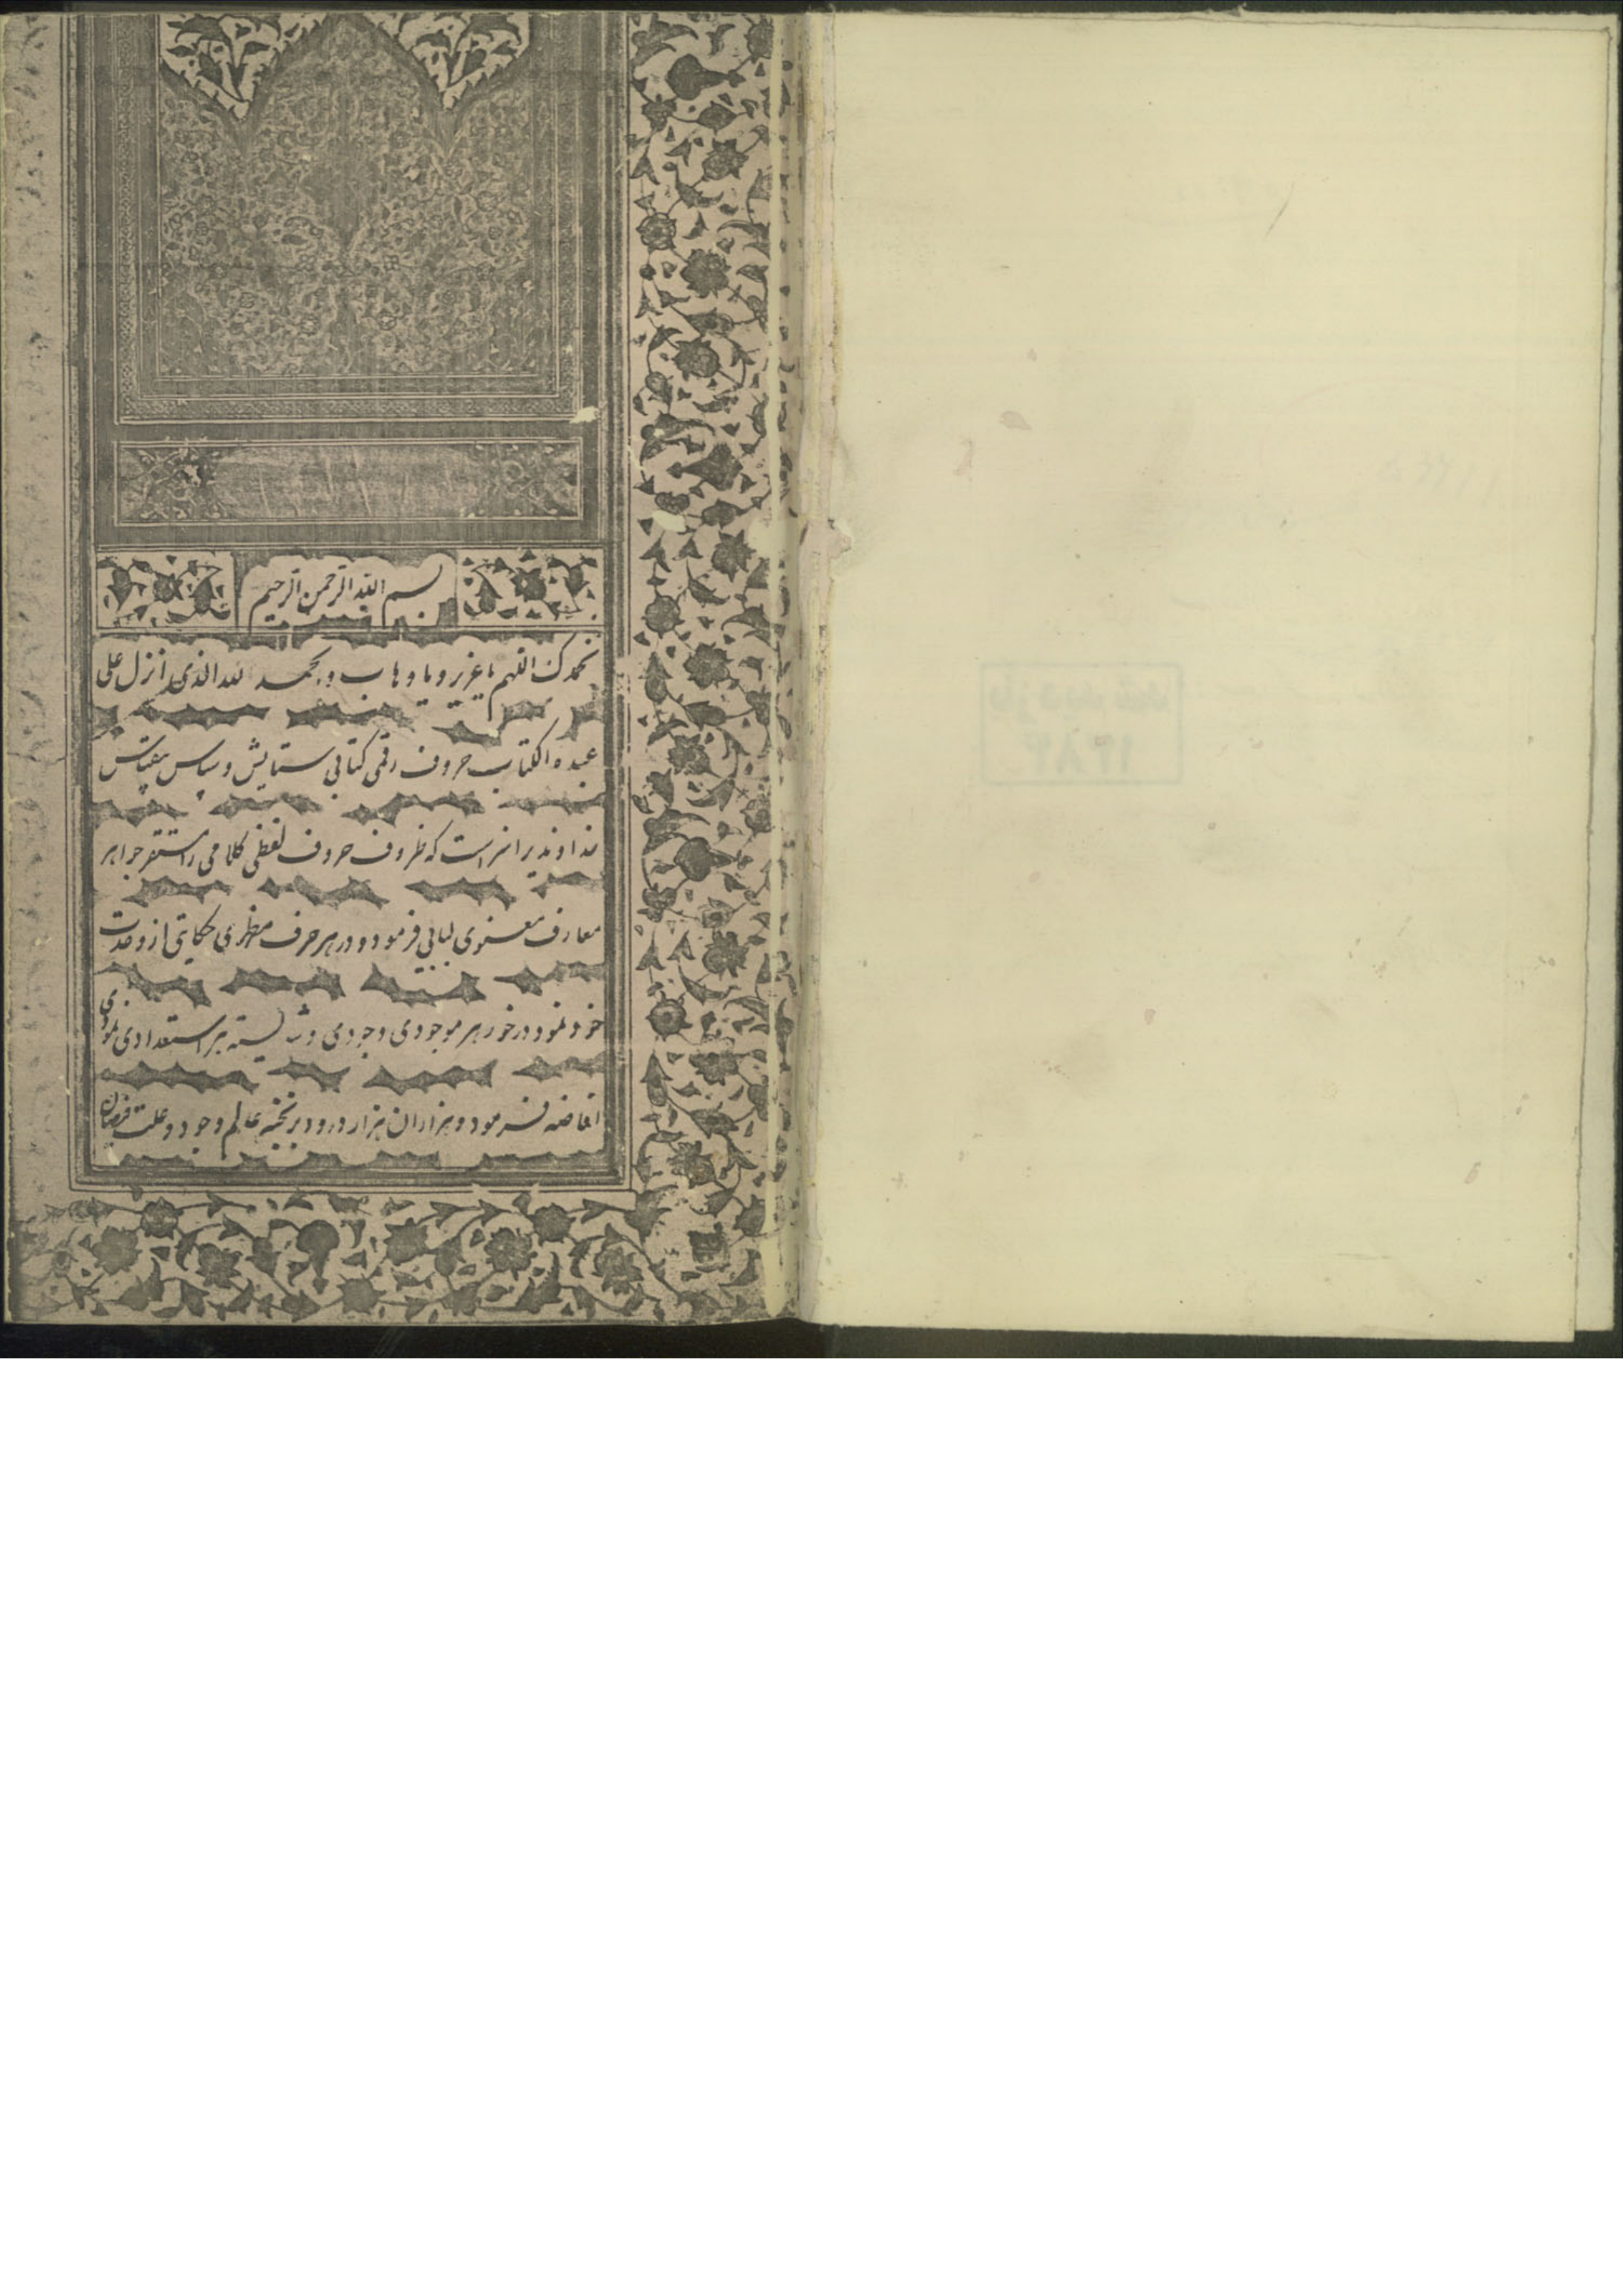 بسم الله الرحمن الرحیم
نحمدک اللهم یا عزیز و یا وهاب و بحمد الله الذی انزل علی
عبده الکتاب حروف رقمی کتابی ستایش و سپاس بیقیاس
خداوندیرا سزاست که ظروف حروف لفظی کلامی را مستقر جواهر
معارف معنوی لبابی فرمود و در هر حرف مظهری حکایتی از وحدت
خود نمود در خور هر موجودی وجودی و شایسته هر استعدادی نمودی
افاضه فرمود و هزاران هزار درود بر نخبه عالم وجود و علت فیضان
بازدید شد
۱۳۸۴